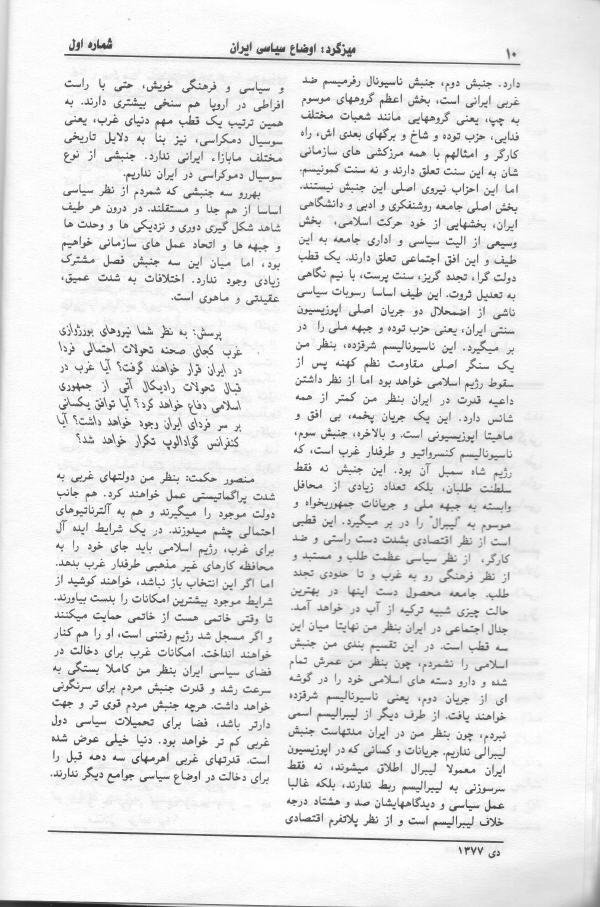 ۱۰
میزگرد: اوضاع سیاسی ایران
شماره اول
دارد. جنبش دوم، جنبش ناسیونال رفرمیسم ضد
غربی ایرانی است، بخش اعظم گروههای موسوم
به چپ، یعنی گروههایی مانند شعبات مختلف
فدایی، حزب توده و شاخ و برگهای بعدی اش، راه
کارگر و امثالهم با همه مرزکشی های سازمانی
شان به این سنت تعلق دارند و نه سنت کمونیسم.
اما این احزاب نیروی اصلی این جنبش نیستند.
بخش اصلی جامعه روشنفکری و ادبی و دانشگاهی
ایران، بخشهایی از خود حرکت اسلامی، بخش
وسیعی از الیت سیاسی و اداری جامعه به این
طیف و این افق اجتماعی تعلق دارند. یک قطب
دولت گرا، تجدد گریز، سنت پرست، با نیم نگاهی
به تعدیل ثروت. این طیف اساسا رسوبات سیاسی
ناشی از اضمحلال دو جریان اصلی اپوزیسیون
سنتی ایران، یعنی حزب توده و جبهه ملی را در
بر میگیرد. این ناسیونالیسم شرقزده، بنظر من
یک سنگر اصلی مقاومت نظم کهنه پس از
سقوط رژیم اسلامی خواهد بود اما از نظر داشتن
داعیه قدرت در ایران بنظر من کمتر از همه
شانس دارد. این یک جریان پخمه، بی افق و
ماهیتا اپوزیسیونی است. و بالاخره، جنبش سوم،
ناسیونالیسم کنسرواتیو و طرفدار غرب است، که
رژیم شاه سمبل آن بود. این جنبش نه فقط
سلطنت طلبان، بلکه تعداد زیادی از محافل
وابسته به جبهه ملی و جریانات جمهوریخواه و
موسوم به "لیبرال" را در بر میگیرد. این قطبی
است از نظر اقتصادی بشدت دست راستی و ضد
کارگر، از نظر سیاسی عظمت طلب و مستبد و
از نظر فرهنگی رو به غرب و تا حدودی تجدد
طلب. جامعه محصول دست اینها در بهترین
حالت چیزی شبیه ترکیه از آب در خواهد آمد.
جدال اجتماعی در ایران بنظر من نهایتا میان این
سه قطب است. در این تقسیم بندی من جنبش
اسلامی را نشمردم، چون بنظر من عمرش تمام
شده و دارو دسته های اسلامی خود را در گوشه
ای از جریان دوم، یعنی ناسیونالیسم شرقزده
خواهند یافت. از طرف دیگر از لیبرالیسم اسمی
نبردم، چون بنظر من در ایران مدتهاست جنبش
لیبرالی نداریم. جریانات و کسانی که در اپوزیسیون
ایران معمولا لیبرال اطلاق میشوند، نه فقط
سرسوزنی به لیبرالیسم ربط ندارند، بلکه غالبا
عمل سیاسی و دیدگاههایشان صد و هشتاد درجه
خلاف لیبرالیسم است و از نظر پلاتفرم اقتصادی
و سیاسی و فرهنگی خویش، حتی با راست
افراطی در اروپا هم سنخی بیشتری دارند. به
همین ترتیب یک قطب مهم دنیای غرب، یعنی
سوسیال دمکراسی، نیز بنا به دلایل تاریخی
مختلف مابازاء ایرانی ندارد. جنبشی از نوع
سوسیال دموکراسی در ایران نداریم.
بهررو سه جنبشی که شمردم از نظر سیاسی
اساسا از هم جدا و مستقلند. در درون هر طیف
شاهد شکل گیری دوری و نزدیکی ها و وحدت ها
و جبهه ها و اتحاد عمل های سازمانی خواهیم
بود، اما میان این سه جنبش فصل مشترک
زیادی وجود ندارد. اختلافات به شدت عمیق،
عقیدتی و ماهوی است.
پرسش: به نظر شما نیروهای بورژوازی
غرب کجای صحنه تحولات احتمالی فردا
در ایران قرار خواهند گرفت؟ آیا غرب در
قبال تحولات رادیکال آتی از جمهوری
اسلامی دفاع خواهد کرد؟ آیا توافق یکسانی
بر سر فردای ایران وجود خواهد داشت؟ آیا
کنفرانس گوادالوپ تکرار خواهد شد؟
منصور حکمت: بنظر من دولتهای غربی به
شدت پراگماتیستی عمل خواهند کرد. هم جانب
دولت موجود را میگیرند و هم به آلترناتیوهای
احتمالی چشم میدوزند. در یک شرایط ایده آل
برای غرب، رژیم اسلامی باید جای خود را به
محافظه کارهای غیر مذهبی طرفدار غرب بدهد.
اما اگر این انتخاب باز نباشد، خواهند کوشید از
شرایط موجود بیشترین امکانات را بدست بیاورند.
تا وقتی خاتمی هست از خاتمی حمایت میکنند
و اگر مسجل شد رژیم رفتنی است، او را هم کنار
خواهند انداخت. امکانات غرب برای دخالت در
فضای سیاسی ایران بنظر من کاملا بستگی به
سرعت رشد و قدرت جنبش مردم برای سرنگونی
خواهد داشت. هرچه جنبش مردم قوی تر و جهت
دارتر باشد، فضا برای تحمیلات سیاسی دول
غربی کم تر خواهد بود. دنیا خیلی عوض شده
است. قدرتهای غربی اهرمهای سه دهه قبل را
برای دخالت در اوضاع سیاسی جوامع دیگر ندارند.
دی ۱۳۷۷